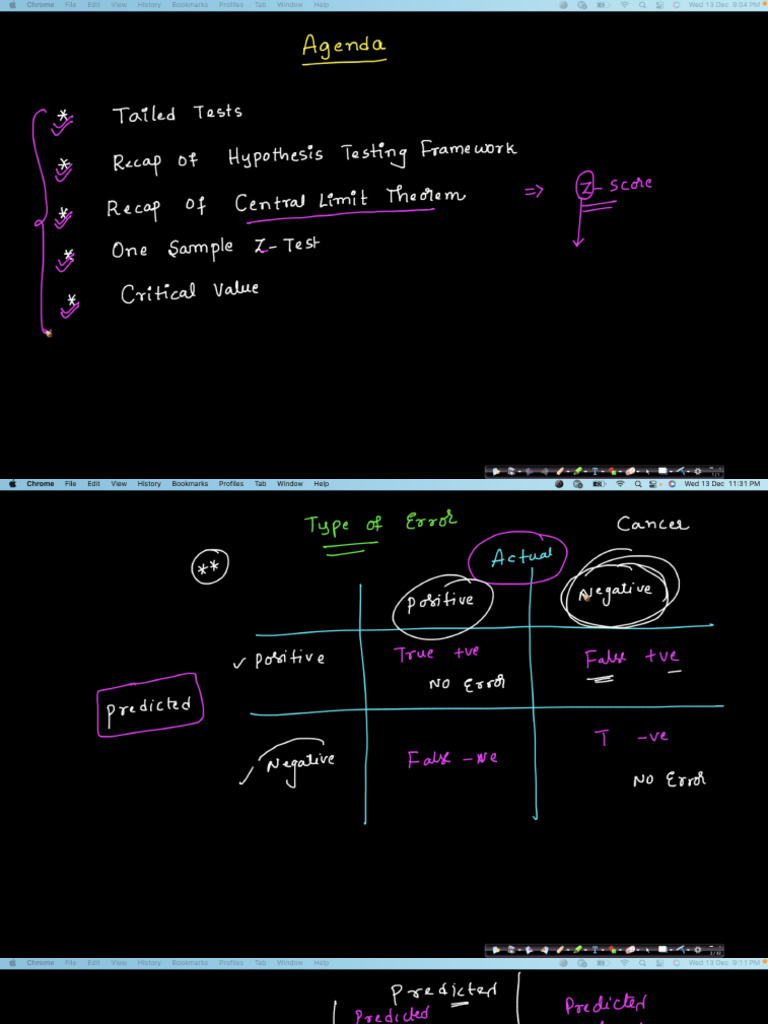 Chrome File Edit View History Bookmarks Profiles Tab Window Help Wed 13 Dec 9:04 PM
Agenda
* Tailed Tests
* Recap of Hypothesis Testing Framework
* Recap of Central Limit Theorem => Z-score
* One Sample Z-Test
* Critical Value
Chrome File Edit View History Bookmarks Profiles Tab Window Help Wed 13 Dec 11:31 PM
Type of Error
Cancer
**
Actual
Positive Negative
Positive True +ve False +ve
NO Error
Predicted
Negative False -ve T -ve
NO Error
Chrome File Edit View History Bookmarks Profiles Tab Window Help Wed 13 Dec 9:11 PM
Predicted
Predicted Predicted